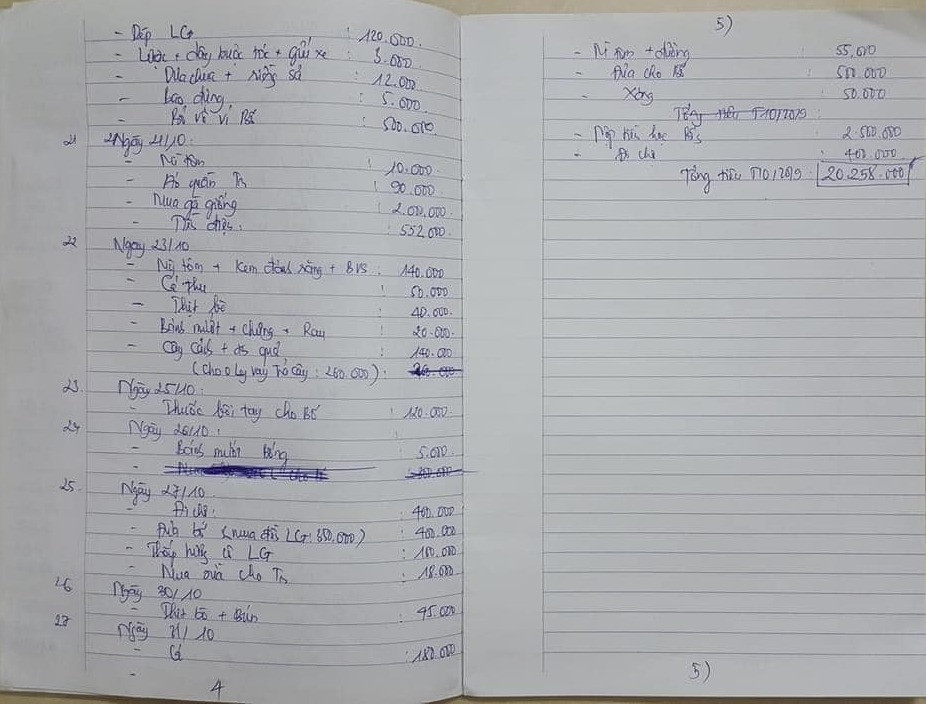 - Dép LG : 120.000.
- Lược + dây buộc tóc + gửi xe : 3.000.
- Dưa chua + riềng sả : 12.000
- Bao đựng : 5.000.
- Bố về ví Bố : 500.000.
21 Ngày 21/10:
- Mì tôm : 10.000.
- Áo quần Tn : 90.000.
- Mua gà giống : 2.000.000.
- Tiền điện : 552.000.
22 Ngày 23/10
- Mỳ tôm + Kem đánh răng + BVS : 140.000
- Cá thu : 50.000
- Thịt bò : 40.000.
- Bánh mướt + chưng + Rau : 20.000.
- Cây cảnh + quả : 140.000
(Cho O Ly vay Trả cây : 260.000) :
23 Ngày 25/10:
- Thuốc bôi tay cho Bố : 120.000.
24 Ngày 26/10 :
- Bánh mướt : 5.000.
25 Ngày 27/10
- Đi chợ : 400.000
- Đưa bố (mua đồ LG: 350.000) : 400.000
- Thắp hương LG : 150.000
- Mua cho Tn : 18.000.
26 Ngày 30/10
- Thịt bò + Bún : 45.000
27 Ngày 31/10
- Cá : 180.000
-
4
5)
- Mì tôm + đường : 55.000
- Đưa cho Bố : 500.000
- Xăng : 50.000
Tổng tiêu T10/2019 :
- Nộp tiền học : 2.500.000
- Đi chợ : 400.000
Tổng tiêu T10/2019 : 20.258.000
5)